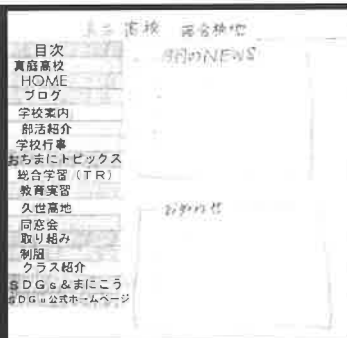 高校
目次
真庭高校
HOME
ブログ
学校案内
部活紹介
学校行事
おちまにトピックス
総合学習（TR）
教育実習
久世高地
同窓会
取り組み
制服
クラス紹介
SDGs&まにこう
SDGs公式ホームページ
月のNEWS
お知らせ